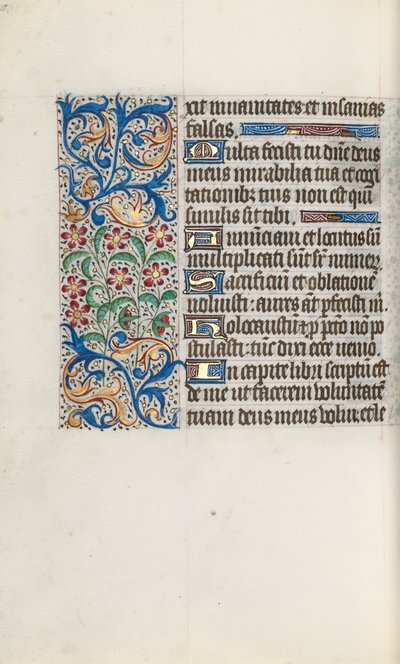 xit in vanitates et insanias
falsas.
Multa fecisti tu dñe deus
meus mirabilia tua et cogi
tationibz tuis non est qui
similis sit tibi.
Annunciaui et locutus sũ
multiplicati sũt sr̃ numer̃
Sacrificiũ et oblationẽ
noluisti : aures aũt perfecisti m̃
Holocaustũ et p pc̃to nõ po
stulasti : tũc dixi ecce uenio.
In capite libri scriptũ est
de me ut facerem voluntatẽ
tuam deus meus volui. et le